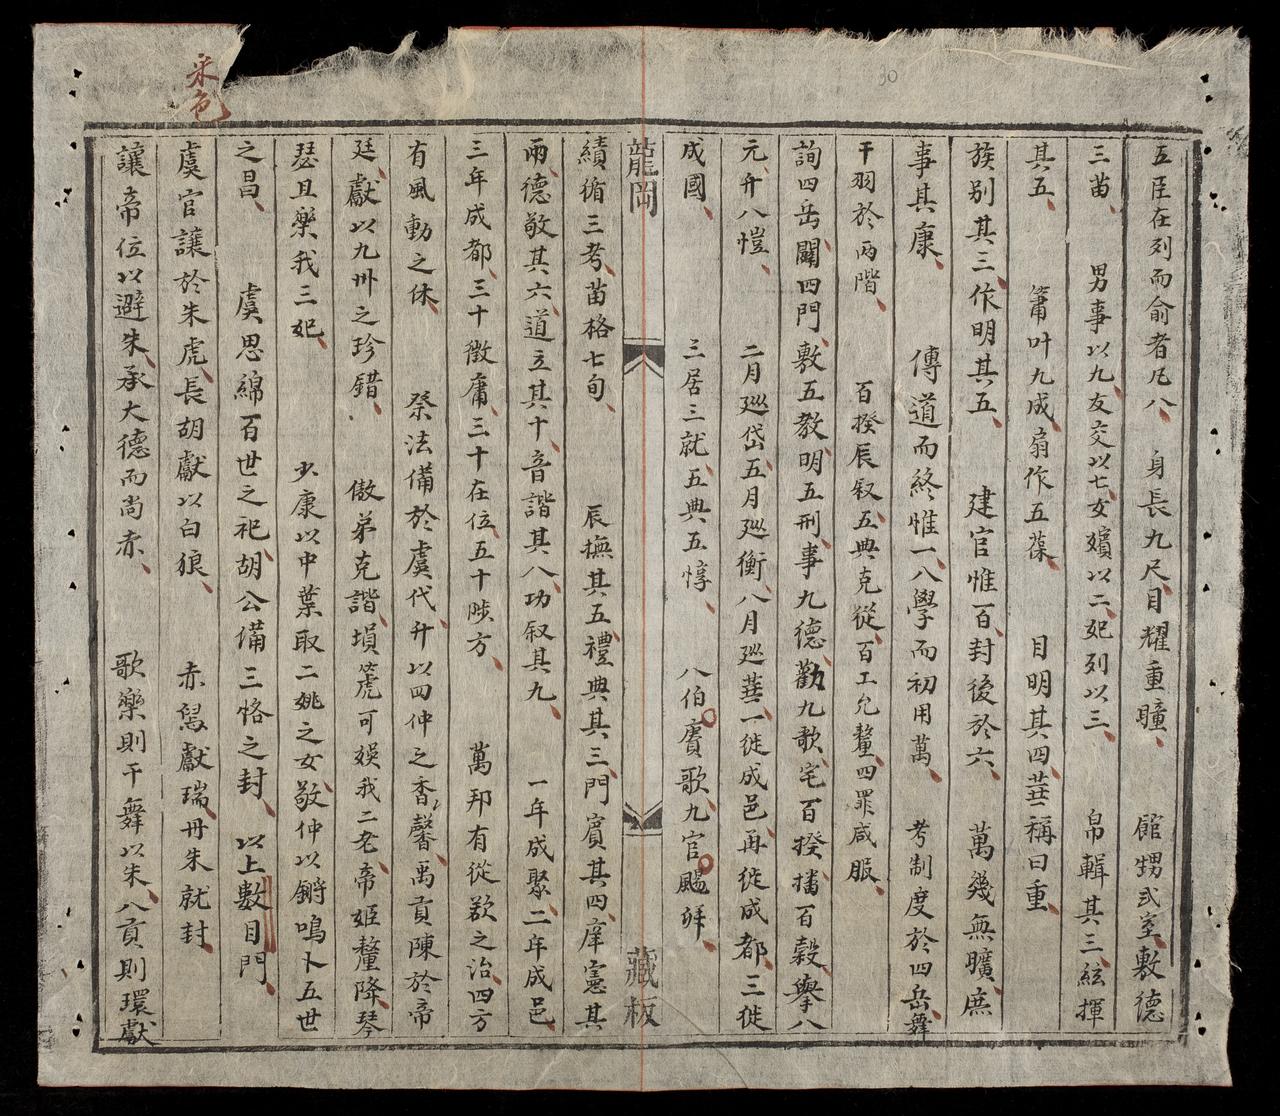 五臣在列而俞者凡八 身長九尺目耀重瞳 館甥弍室敷德
三苗 男事以九友交以七女嬪以二妃列以三 帛輯其三絃揮
其五 簫叶九成扇作五葆 目明其四華稱曰重
族别其三作明其五 建官惟百封後於六 萬幾無曠庶
事其康 傳道而終惟一八學而初用萬 考制度於四岳舞
干羽於两階 百揆辰叙五典克從百工允釐四罪咸服
詢四岳闢四門敷五教明五刑事九德勸九歌宅百揆播百穀舉八
元升八愷 二月廵岱五月廵衡八月廵華一徙成邑再徙成都三徙
成國 三居三就五典五惇 八伯賡歌九官颺拜
龍岡 藏板
績循三考苗格七旬 辰撫其五禮典其三門賓其四庠憲其
兩德敬其六道立其十音諧其八功叙其九 一年成聚二年成邑
三年成都三十徵庸三十在位五十陟方 萬邦有從欲之治四方
有風動之休 祭法備於虞代升以四仲之香馨禹貢陳於帝
廷獻以九州之珍錯 傲弟克諧塤篪可娛我二老帝姬釐降琴
瑟且樂我三妃 少康以中葉取二姚之女敬仲以鏘鳴卜五世
之昌 虞思綿百世之祀胡公備三恪之封 以上數目門
采色
虞官讓於朱虎長胡獻以白狼 赤舄獻瑞丹朱就封
讓帝位以避朱承大德而尚赤 歌樂則干舞以朱八貢則環獻
30